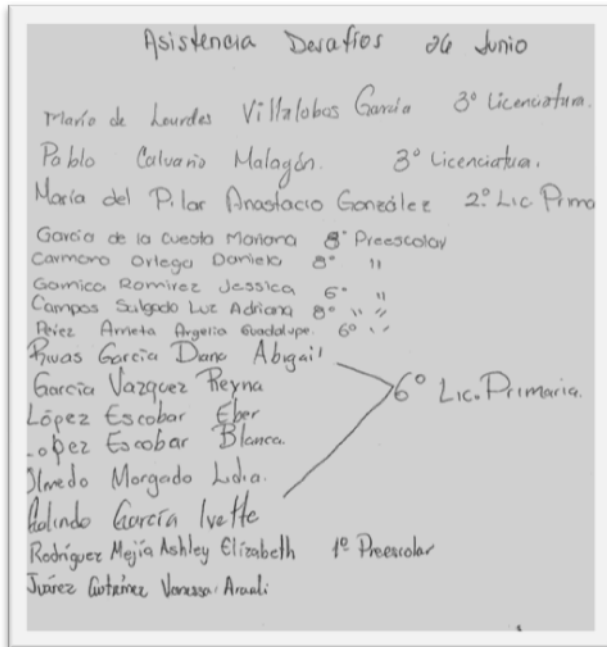 Asistencia Desafíos 26 Junio
María de Lourdes Villalobos García 3° Licenciatura.
Pablo Calvario Malagón. 3° Licenciatura.
María del Pilar Anastacio González 2° Lic Prima
García de la Cuesta Mariana 8° Preescolar
Carmona Ortega Daniela 8° "
Garnica Ramirez Jessica 6° "
Campos Salgado Luz Adriana 8° " "
Pérez Arrieta Argelia Guadalupe. 6° "
Rivas García Dana Abigail
García Vazquez Reyna 6° Lic. Primaria.
López Escobar Eber
Lopez Escobar Blanca.
Olmedo Morgado Lidia.
Galindo García Ivette
Rodríguez Mejía Ashley Elizabeth 1° Preescolar
Juárez Vanessa Araceli